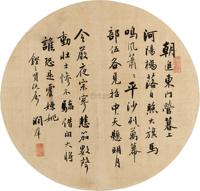 朝進東門營暮上
河陽橋落日照大旗馬
鳴風蕭〻平沙列萬幕
部伍各見招中天懸明月
令嚴夜寂寥悲笳數聲
動壯士慘不驕借問大將
誰恐是霍嫖姚